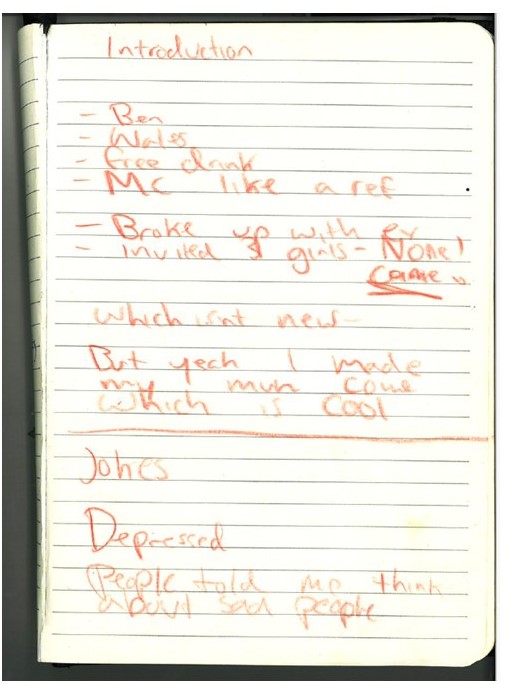 Introduction
- Ben
- Wales
- free drink
- MC like a ref
- Broke up with ex
- invited 3 girls - None!
came
which isnt new -
But yeah I made
my mum come
which is cool
Jokes
Depressed
People told me think
about sad people